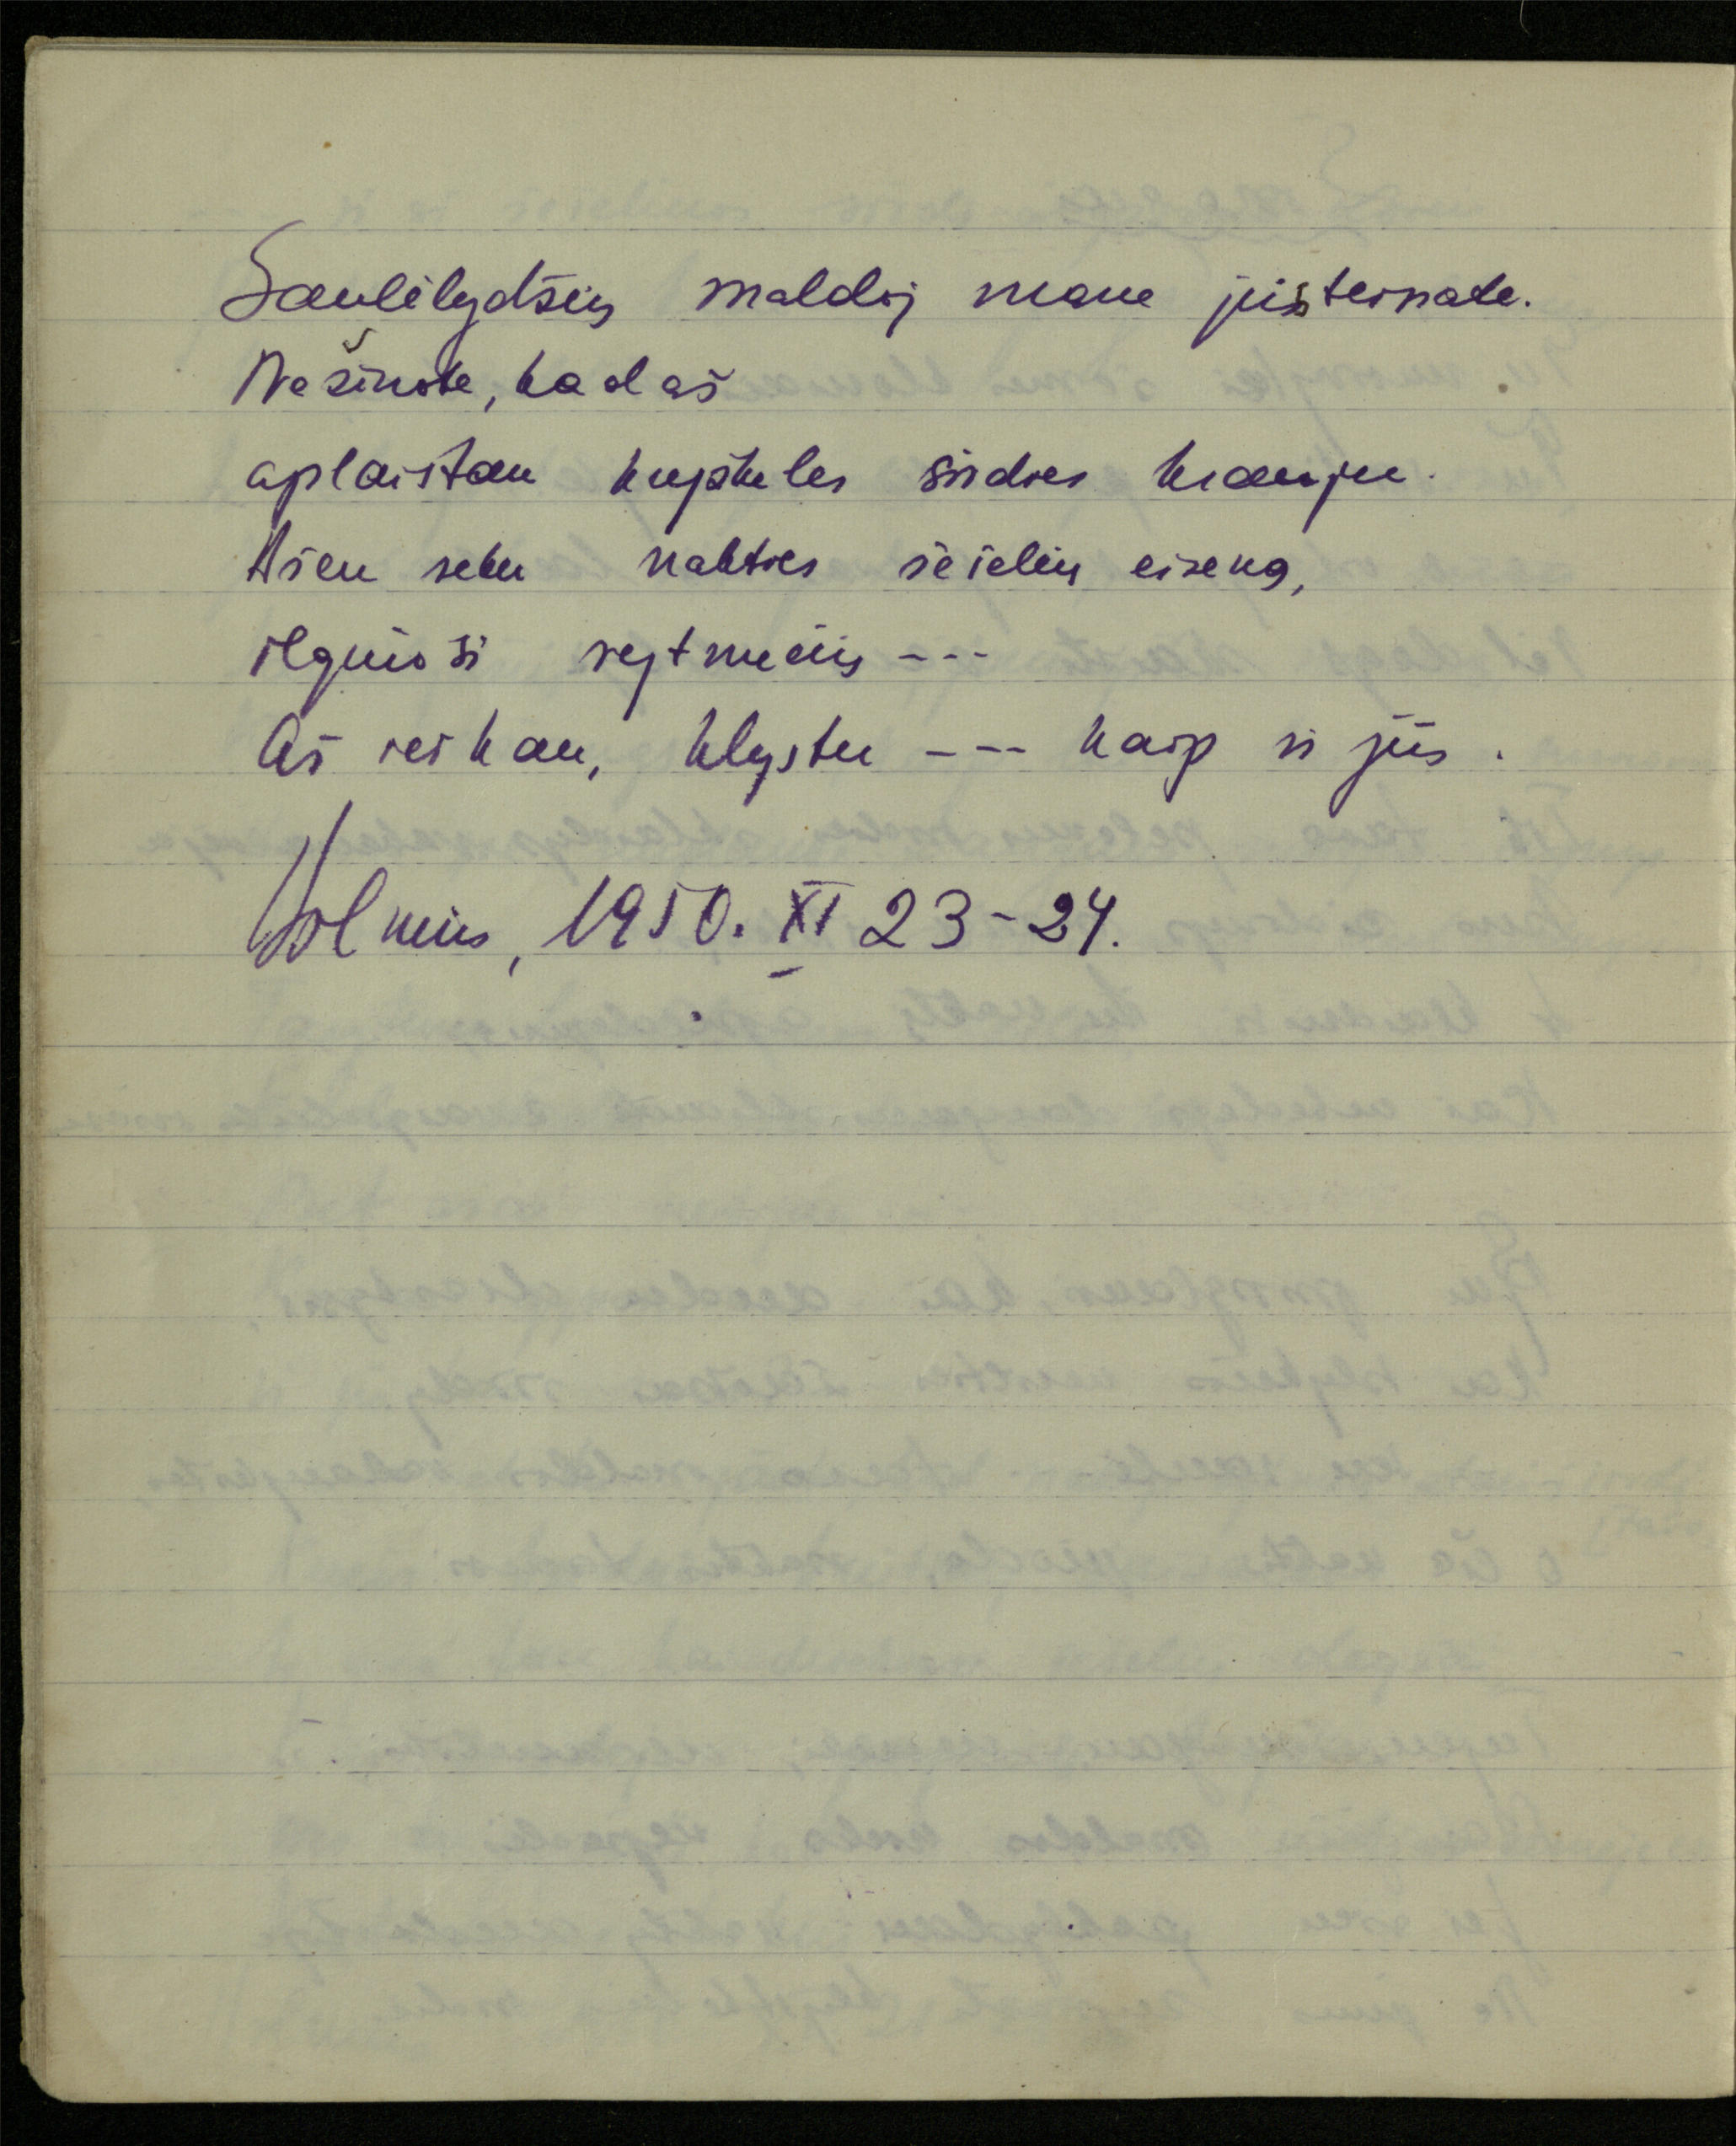 Saulėlydžių maldoj mane jūs teisiate.
Nežinote, kad aš
aplaistau kryžkeles širdies krauju.
Ašen seku nakties šešėlių eiseną,
ilgiuosi rytmečių ---
Aš ieškau, klystu --- kaip ir jūs.
Vilnius, 1950. XI 23-24.